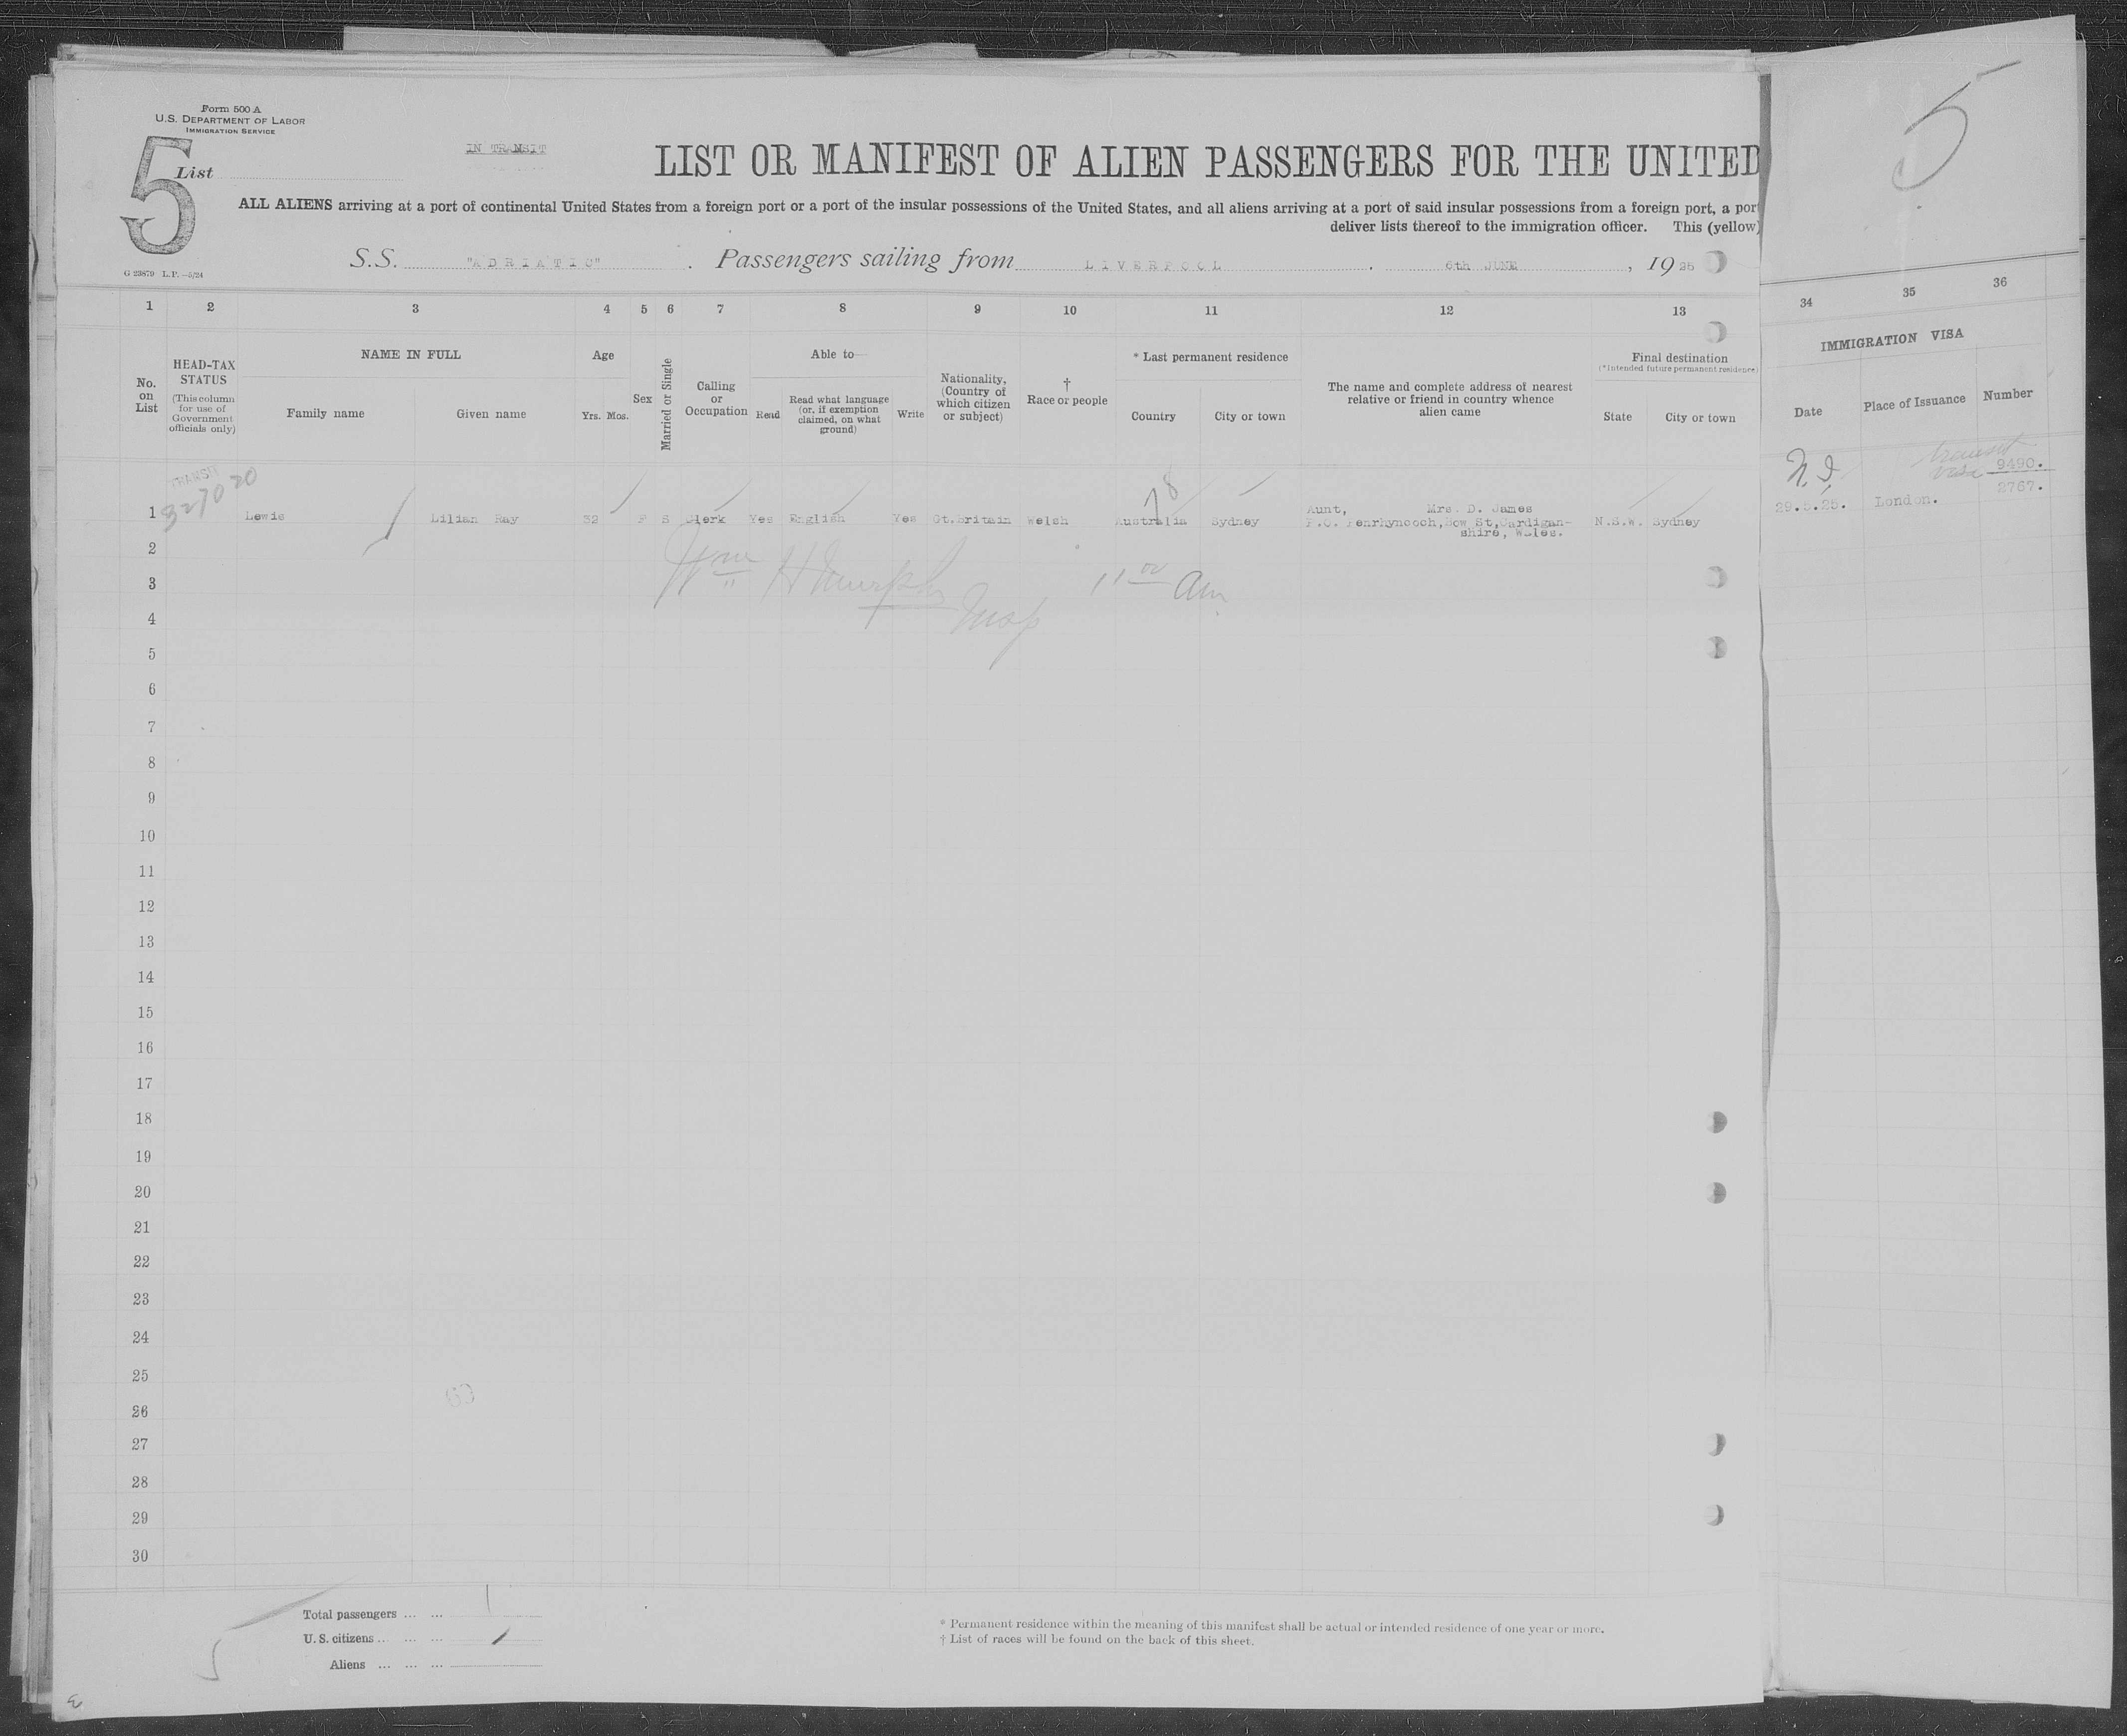 Form 500 A
U.S. DEPARTMENT OF LABOR
IMMIGRATION SERVICE
5
List
IN TRANSIT
LIST OR MANIFEST OF ALIEN PASSENGERS FOR THE UNITED
ALL ALIENS arriving at a port of continental United States from a foreign port or a port of the insular possessions of the United States, and all aliens arriving at a port of said insular possessions from a foreign port, a port
deliver lists thereof to the immigration officer. This (yellow)
G 23879 L.P.—5/24
S.S. "ADRIATIC". Passengers sailing from LIVERPOOL. 6th JUNE, 1925
5
1 2 3 4 5 6 7 8 9 10 11 12 13 34 35 36
No. on List
HEAD-TAX STATUS
(This column for use of Government officials only)
NAME IN FULL
Family name Given name
Age
Yrs. Mos.
Sex
Married or Single
Calling or Occupation
Able to—
Read
Read what language (or, if exemption claimed, on what ground)
Write
Nationality, (Country of which citizen or subject)
† Race or people
* Last permanent residence
Country City or town
The name and complete address of nearest relative or friend in country whence alien came
Final destination
(*Intended future permanent residence)
State City or town
IMMIGRATION VISA
Date Place of Issuance Number
TRANSIT
N.I. transit visa 9490.
2767.
29.5.25. London.
1 Lewis Lilian Ray 32 F S Clerk Yes English Yes Gt.Britain Welsh Australia Sydney
Aunt, Mrs. D. James
P.O. Penrhyncoch, Bow St, Cardigan-
shire, Wales.
N.S.W. Sydney
2
Wm H Murphy
Insp
11 00 Am
3
4
5
6
7
8
9
10
11
12
13
14
15
16
17
18
19
20
21
22
23
24
25
26
27
28
29
30
Total passengers ... ... 1
U.S. citizens ... ... ...
Aliens ... ... ...
* Permanent residence within the meaning of this manifest shall be actual or intended residence of one year or more.
† List of races will be found on the back of this sheet.